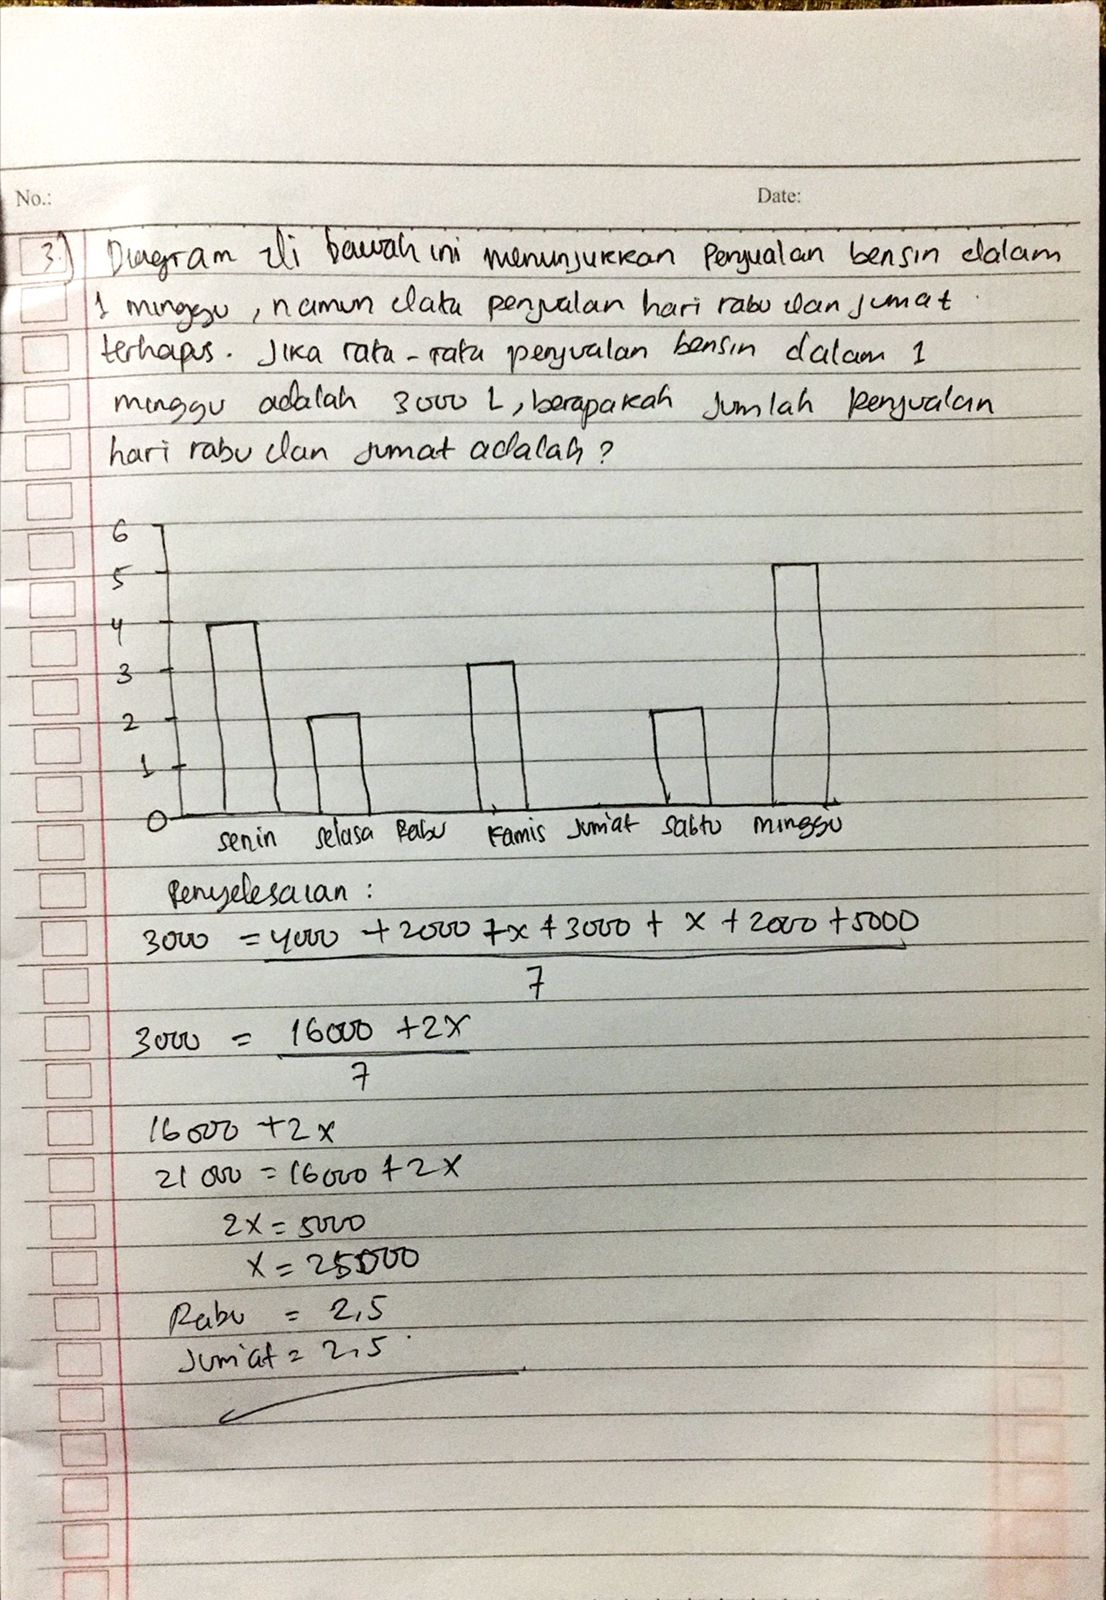 No.:
Date:
3.) Diagram di bawah ini menunjukkan Penjualan bensin dalam
1 minggu, namun data penjualan hari rabu dan jumat
terhapus. Jika rata-rata penjualan bensin dalam 1
minggu adalah 3000 L, berapakah Jumlah Penjualan
hari rabu dan jumat adalah?
6
5
4
3
2
1
0
Senin Selasa Rabu Kamis Jum'at Sabtu Minggu
Penyelesaian :
3000 = 4000 + 2000 + x + 3000 + x + 2000 + 5000
7
3000 = 16000 + 2x
7
16000 + 2x
21000 = 16000 + 2x
2x = 5000
x = 25000
Rabu = 2,5
Jum'at = 2,5